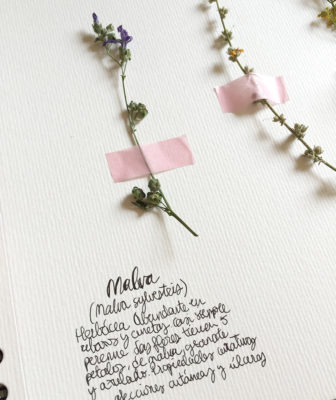 Malva
(Malva sylvestris)
Herbácea Abundante en
retamas y cunetas casi siempre
perenne sas flores tienen 5
petalos, de malva granate
y azulado. Propiedades curativas
afecciones cutáneas y úlceras